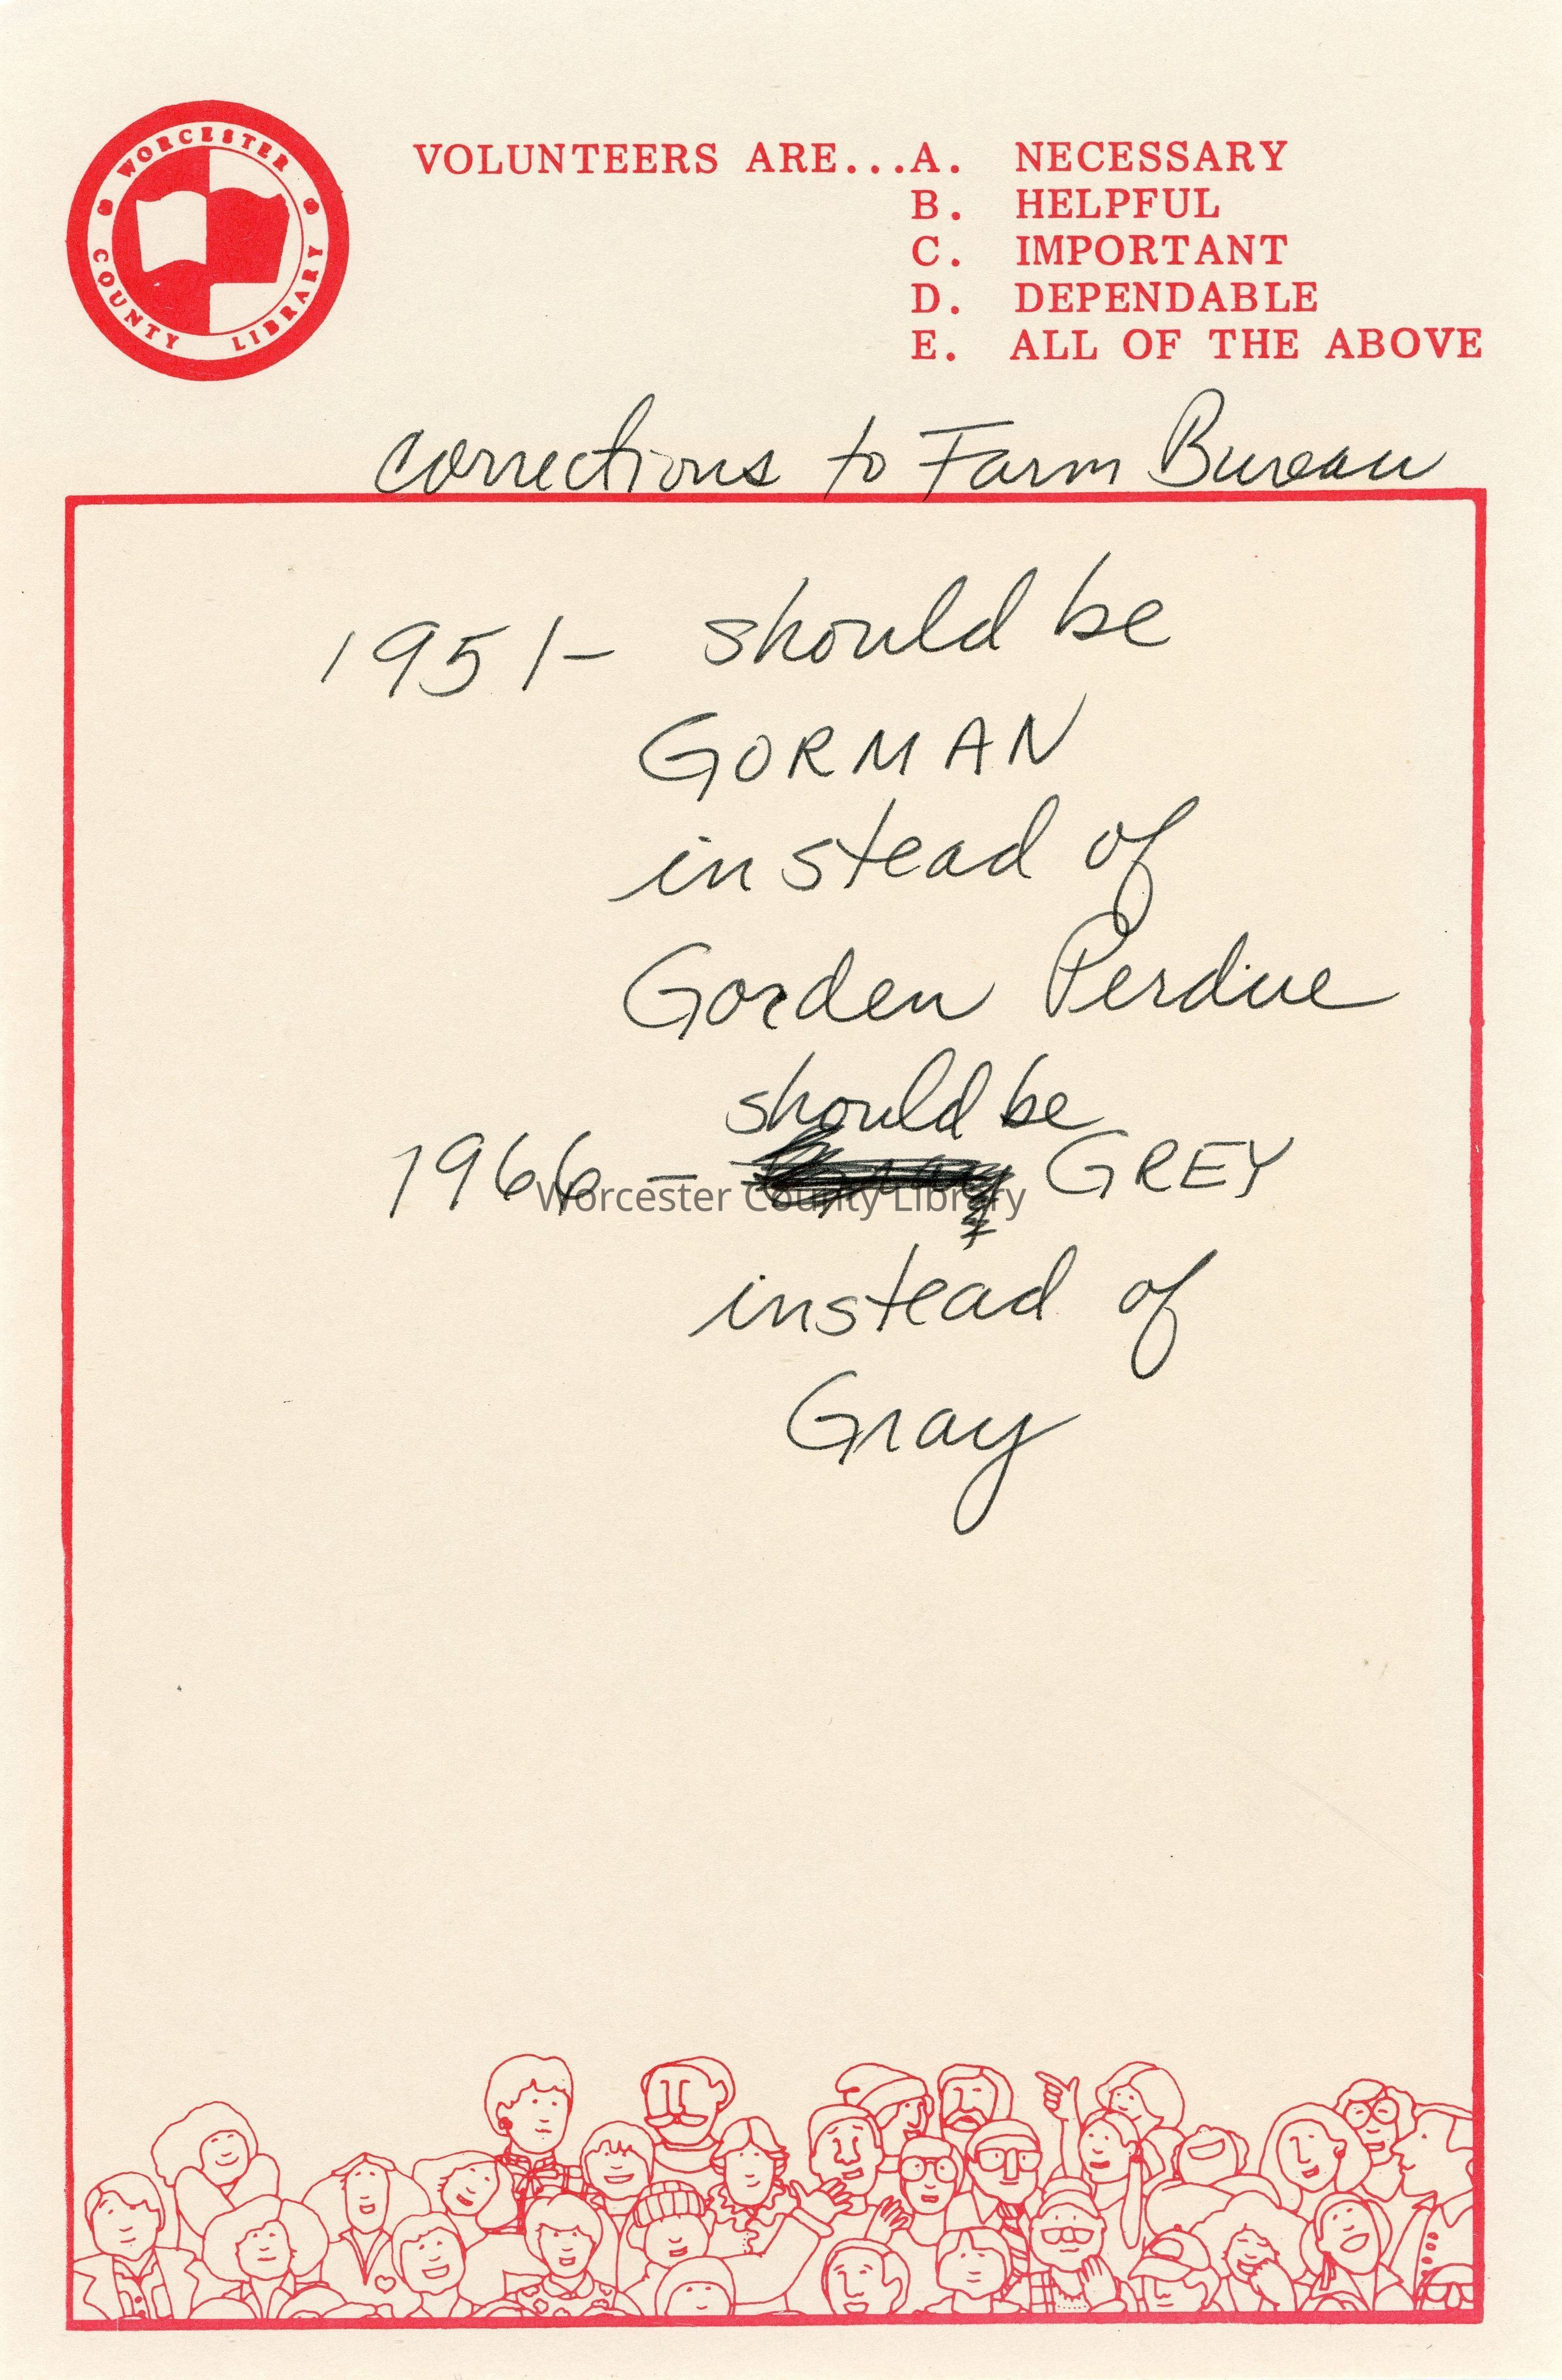 WORCESTER COUNTY LIBRARY
VOLUNTEERS ARE...A. NECESSARY
B. HELPFUL
C. IMPORTANT
D. DEPENDABLE
E. ALL OF THE ABOVE
corrections to Farm Bureau
1951- should be
GORMAN
instead of
Gorden Perdue
should be
1966 - GREY
Worcester County Library
instead of
Gray